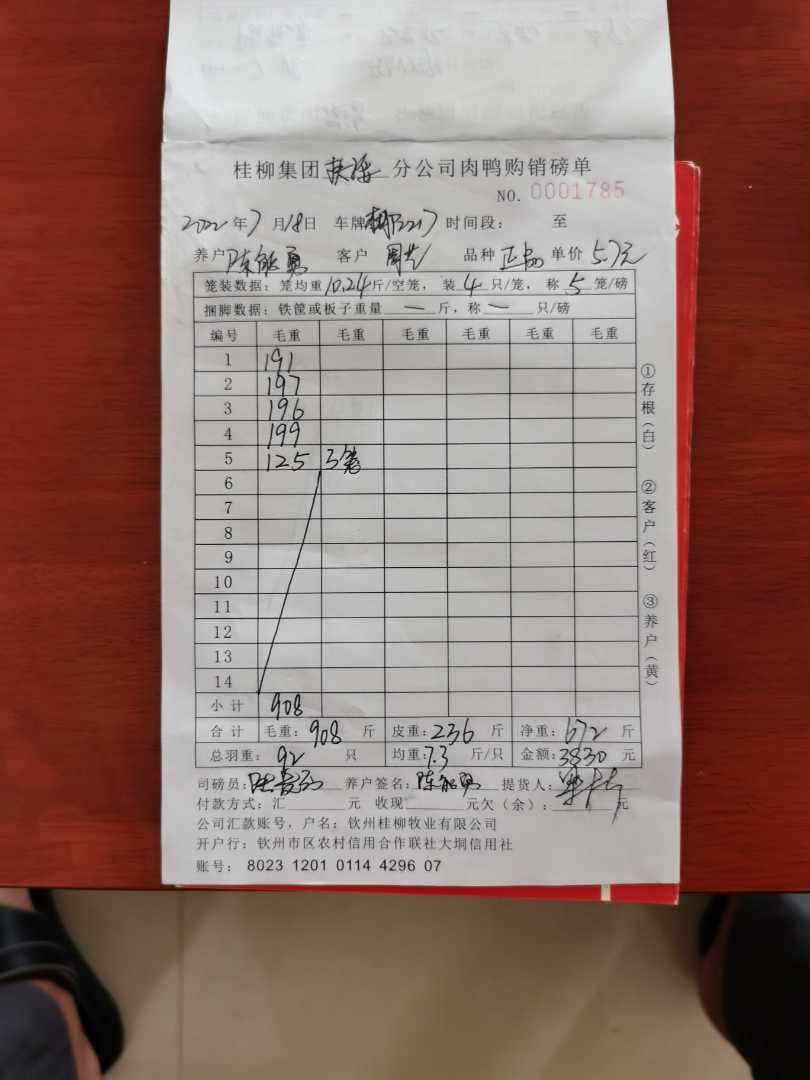 桂柳集团 扶绥 分公司肉鸭购销磅单
NO. 0001785
2022年7月18日 车牌 时间段: 至
养户 陈能勇 客户 周 品种 正品 单价 5.7元
笼装数据: 笼均重10.24斤/空笼, 装4只/笼, 称5笼/磅
捆脚数据: 铁筐或板子重量 — 斤, 称 — 只/磅
编号 毛重 毛重 毛重 毛重 毛重 毛重
1 191
2 197
3 196
4 199
5 125 3笼
6
7
8
9
10
11
12
13
14
小计 908
合计 毛重: 908 斤 皮重: 236 斤 净重: 672 斤
总羽重: 92 只 均重: 7.3 斤/只 金额: 3830 元
司磅员: 养户签名: 陈能勇 提货人:
付款方式: 汇 元 收现 元欠(余): 元
公司汇款账号, 户名: 钦州桂柳牧业有限公司
开户行: 钦州市区农村信用合作联社大垌信用社
账号: 8023 1201 0114 4296 07
①存根(白)
②客户(红)
③养户(黄)